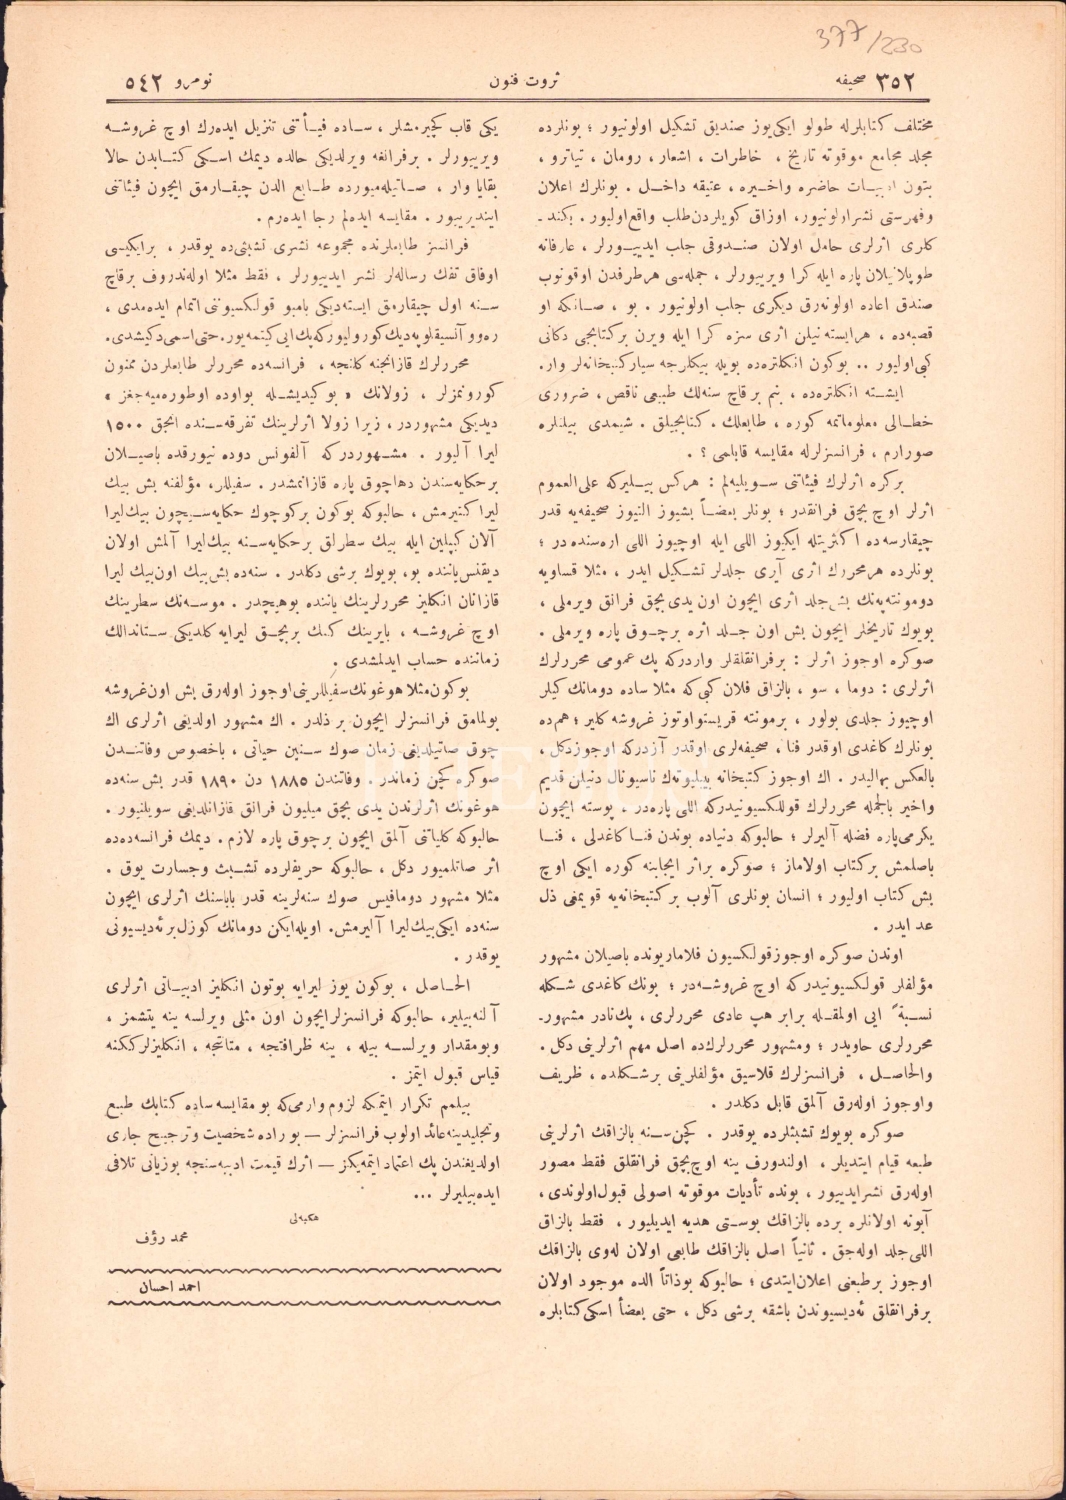 377/230
٣٥٢ صحیفه
ثروت فنون
نومرو ٥٤٢
مختلف کتابلرله طولو ایکی‌یوز صندیق تشکیل اولونیور ؛ بونلرده
مجلد مجامع موقوته تاریخ ، خاطرات ، اشعار ، رومان ، تیاترو ،
بتون ادبیات حاضره واخیره ، عتیقه داخل . بونلرك اعلان
وفهرستی نشراولونیور، اوزاق کویلردن طلب واقع اولیور . بکند ـ
کلری اثرلری حامل اولان صندوقی جلب ایدیورلر ، عارفانه
طوپلانیلان پاره ایله کرا ویرییورلر ، جمله‌سی هرطرفدن اوقونوب
صندق اعاده اولونه‌رق دیکری جلب اولونیور . بو ، صانکه او
قصبه‌ده ، هرایسته‌نیلن اثری سزه کرا ایله ویرن برکتابجی دکانی
کبی اولیور .. بوکون انکلتره‌ده بویله بیکلرجه سیار کتبخانه‌لر وار.
ایشته انکلتره‌ده ، بنم برقاچ سنه‌لك طبیعی ناقص ، ضروری
خطالی معلوماتمه کوره ، طابعلك ، کتابجیلق . شیمدی بیلنلره
صورارم ، فرانسزلرله مقایسه قابلمی ؟ .
برکره اثرلرك فیئاتنی سویلیه‌لم : هرکس بیلیرکه علی‌العموم
اثرلر اوچ بچق فرانقدر ؛ بونلر بعضاً بشیوز التیوز صحیفه‌یه قدر
چیقارسه‌ده اکثریتله ایکیوز اللی ایله اوچیوز اللی اره‌سنده در ؛
بونلرده هرمحررك اثری آیری جلدلر تشکیل ایدر ، مثلا قساویه
دومونته‌په‌نك بش جلد اثری ایچون اون یدی بچق فرانق ویرملی ،
بویوك تاریخلر ایچون بش اون جلد اثره برچوق پاره ویرملی .
صوکره اوجوز اثرلر : برفرانقلقلر واردرکه پك عمومی محررلرك
اثرلری : دوما ، سو ، بالزاق فلان کبی که مثلا ساده دومانك کیلر
اوچیوز جلدی بولور ، برمونته قریستو اوتوز غروشه کلیر ؛ هم‌ده
بونلرك کاغدی اوقدر فنا ، صحیفه‌لری اوقدر آزدرکه اوجوز دکل ،
بالعکس بهالیدر . اك اوجوز کتبخانه بیبلیوته‌ك ناسیونال دنیلن قدیم
واخیر بالجمله محررلرك قوللکسیونیدرکه اللی پاره‌در ، پوسته ایچون
یکرمی پاره فضله آلیرلر ؛ حالبوکه دنیاده بوندن فنا کاغدلی ، فنا
باصلمش برکتاب اولاماز ؛ صوکره براثر ایجابنه کوره ایکی اوچ
بش کتاب اولیور ؛ انسان بونلری آلوب برکتبخانه‌یه قویمغی ذل
عد ایدر .
اوندن صوکره اوجوز قولکسیون فلاماریونده باصیلان مشهور
مؤلفلر قولکسیونیدرکه اوچ غروشه‌در ؛ بونك کاغدی شکله
نسبةً ایی اولمقله برابر هپ عادی محررلری ، پك نادر مشهور ـ
محررلری حاویدر ؛ ومشهور محررلرك‌ده اصل مهم اثرلرینی دکل .
والحاصل ، فرانسزلرك قلاسیق مؤلفلرینی برشکلده ، ظریف
واوجوز اوله‌رق آلمق قابل دکلدر .
صوکره بویوك تشبثلرده یوقدر . کچن سنه بالزاقك اثرلرینی
طبعه قیام ایتدیلر ، اولندورف ینه اوچ بچق فرانقلق فقط مصور
اوله‌رق نشرایدییور ، بونده تأدیات موقوته اصولی قبول اولوندی ،
آبونه اولانلره برده بالزاقك بوستی هدیه ایدیلیور ، فقط بالزاق
اللی جلد اوله‌جق . ثانیاً اصل بالزاقك طابعی اولان له‌وی بالزاقك
اوجوز برطبعنی اعلان ایتدی ؛ حالبوکه بوذاتاً الده موجود اولان
برفرانقلق ئه‌دیسیوندن باشقه برشی دکل ، حتی بعضاً اسکی کتابلره
یکی قاب کچیرمشلر ، ساده فیأتنی تنزیل ایده‌رك اوچ غروشه
ویرییورلر . برفرانغه ویرلدیکی حالده دیمك اسکی کتابدن حالا
بقایا وار ، صاتیله‌میورده طابع الدن چیقارمق ایچون فیئاتنی
ایندیرییور . مقایسه ایده‌لم رجا ایده‌رم .
فرانسز طابعلرنده مجموعه نشری تشبثی‌ده یوقدر ، برایکیسی
اوفاق تفك رساله‌لر نشر ایدییورلر ، فقط مثلا اوله‌ندروف برقاچ
سنه اول چیقارمق ایسته‌دیکی بامبو قولکسیوننی اتمام ایده‌مدی ،
ره‌وو آنسیقلوپه‌دیك کورولیورکه پك ایی کیتمه‌یور. حتی اسمی دکیشدی.
محررلرك قازانجنه کلنجه ، فرانسه‌ده محررلر طابعلردن ممنون
کورونمزلر ، زولانك « بوکیدیشله بواوده اوطوره‌میه‌جغز »
دیدیکی مشهوردر ، زیرا زولا اثرلرینك تفرقه‌سنده انجق ١٥٠٠
لیرا آلیور . مشهوردرکه آلفونس دوده نیورقده باصیلان
برحکایه‌سندن دهاچوق پاره قازانمشدر . سفیللر، مؤلفنه بش بیك
لیرا کتیرمش ، حالبوکه بوکون برکوچوك حکایه‌سیچون بیك لیرا
آلان کیپلین ایله بیك سطرلق برحکایه‌سنه بیك لیرا آلمش اولان
دیقنس یاننده بو، بویوك برشی دکلدر . سنه‌ده بش بیك اون بیك لیرا
قازانان انکلیز محررلرینك یاننده بوهیچدر . موسه‌نك سطرینك
اوچ غروشه ، بایرینك کنك بربچق لیرایه کلدیکی ستاندالك
زماننده حساب ایدلمشدی .
بوکون مثلا هوغونك سفیللرینی اوجوز اوله‌رق بش اون غروشه
بولمامق فرانسزلر ایچون بر ذلدر . اك مشهور اولدیغی اثرلری اك
چوق صاتیلدیغی زمان صوك سنین حیاتی ، باخصوص وفاتندن
صوکره کچن زماندر . وفاتندن ١٨٨٥ دن ١٨٩٠ قدر بش سنه‌ده
هوغونك اثرلرندن یدی بچق میلیون فرانق قازانلدیغی سویلنیور .
حالبوکه کلیاتنی آلمق ایچون برچوق پاره لازم . دیمك فرانسه‌ده‌ده
اثر صاتلمیور دکل ، حالبوکه حریفلرده تشبث وجسارت یوق .
مثلا مشهور دومافیس صوك سنه‌لرینه قدر باباسنك اثرلری ایچون
سنه‌ده ایکی بیك لیرا آلیرمش. اویله‌ایکن دومانك کوزل برئه‌دیسیونی
یوقدر .
الحاصل ، بوکون یوز لیرایه بوتون انکلیز ادبیاتی اثرلری
آلنه‌بیلیر، حالبوکه فرانسزلرایچون اون مثلی ویرلسه ینه یتشمز ،
وبومقدار ویرلسه بیله ، ینه ظرافتجه ، متانتجه ، انکلیزلرککنه
قیاس قبول ایتمز .
بیلمم تکرار ایتمکه لزوم وارمی‌که بو مقایسه ساده کتابك طبع
وتجلیدینه عائد اولوب فرانسزلر — بوراده شخصیت وترجیح جاری
اولدیغندن پك اعتماد ایتمه‌یکز — اثرك قیمت ادبیه‌سنجه بوزیانی تلافی
ایده‌بیلیرلر ...
هکبه‌لی
محمد رؤف
احمد احسان